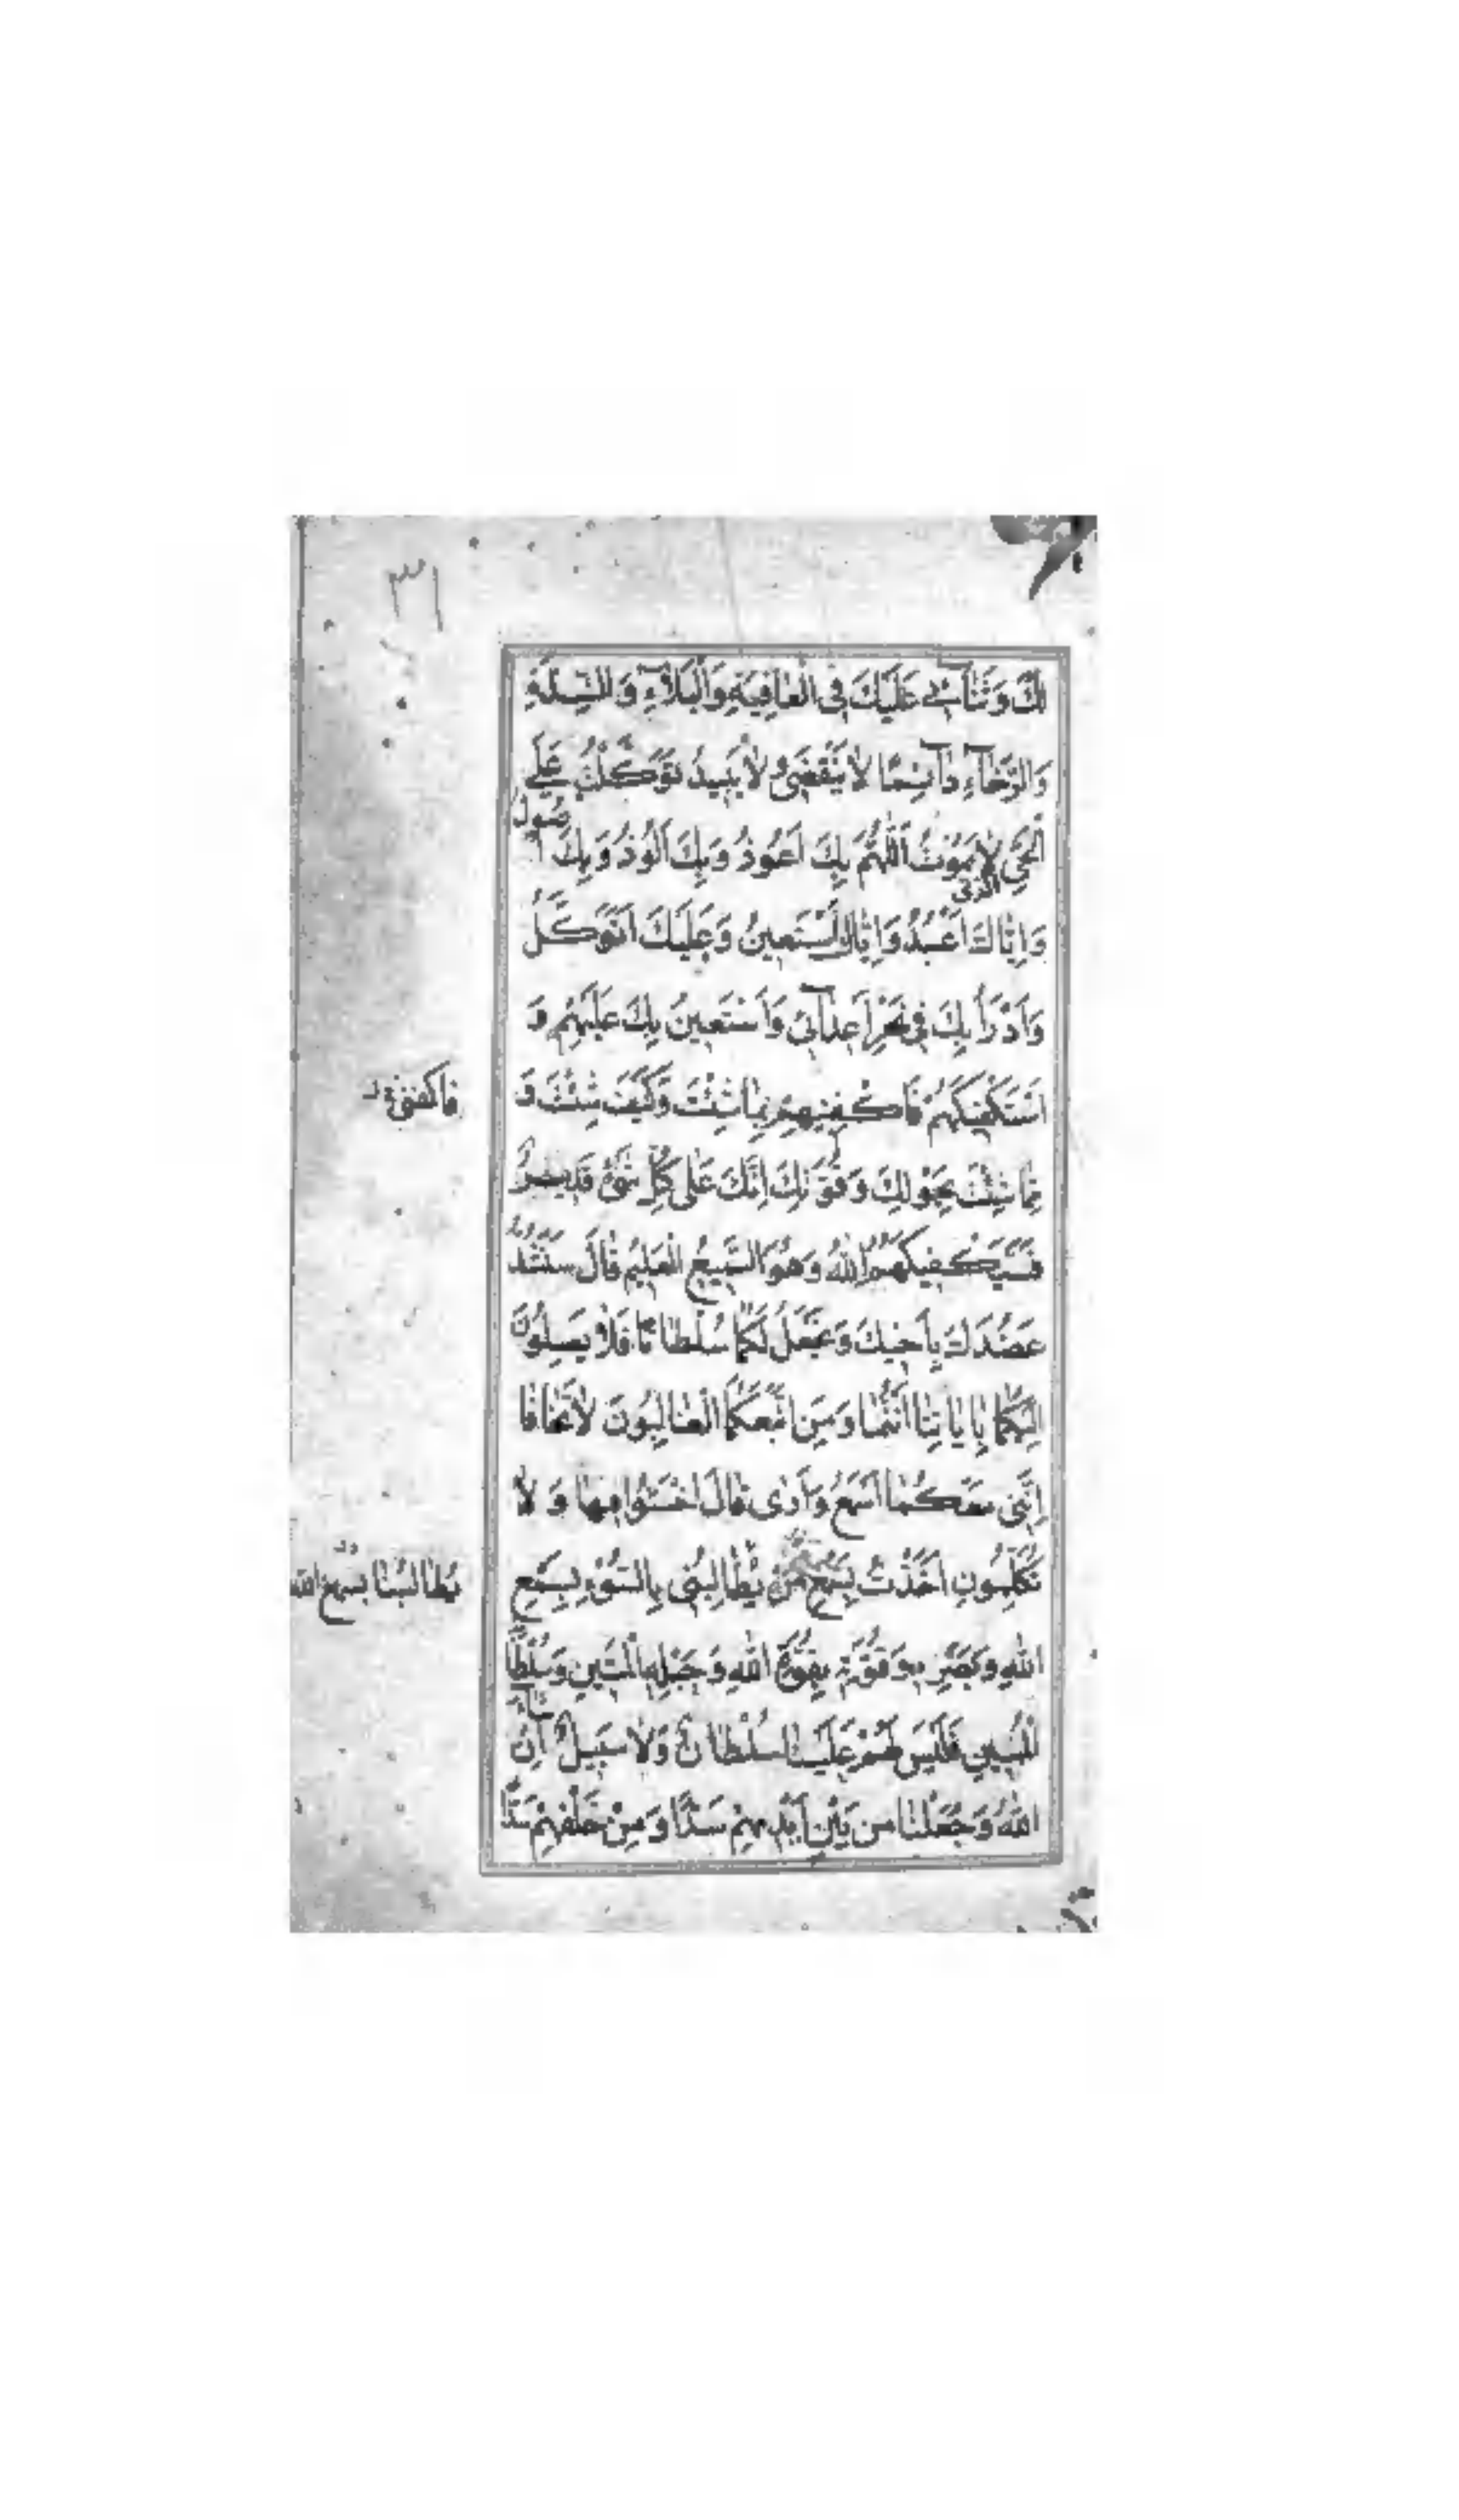 ٣١
لَكَ وَثَنَآئِی عَلَيْكَ فِی الْعَافِيَةِ وَالْبَلَآءِ وَالشِّدَّةِ
وَالرَّخَآءِ دَآئِمًا لَا يَنْقَضِی وَلَا يَبِيدُ تَوَكَّلْتُ عَلَی
الْحَیِّ الَّذِی لَا يَمُوتُ اَللّٰهُمَّ بِكَ اَعُوذُ وَبِكَ اَلُوذُ وَبِكَ اَصُولُ
وَاِيَّاكَ اَعْبُدُ وَاِيَّاكَ اَسْتَعِينُ وَعَلَيْكَ اَتَوَكَّلُ
وَاَدْرَأُ بِكَ فِی نَحْرِ اَعْدَآئِی وَاَسْتَعِينُ بِكَ عَلَيْهِمْ وَ
اَسْتَكْفِيكَهُمْ فَاكْفِنِيهِمْ بِمَا شِئْتَ وَكَيْفَ شِئْتَ وَ
فاكفنی
مِمَّا شِئْتَ بِحَوْلِكَ وَقُوَّتِكَ اِنَّكَ عَلٰی كُلِّ شَیْءٍ قَدِيرٌ
فَسَيَكْفِيكَهُمُ اللّٰهُ وَهُوَ السَّمِيعُ الْعَلِيمُ قَالَ سَنَشُدُّ
عَضُدَكَ بِاَخِيكَ وَنَجْعَلُ لَكُمَا سُلْطَانًا فَلَا يَصِلُونَ
اِلَيْكُمَا بِاٰيَاتِنَا اَنْتُمَا وَمَنِ اتَّبَعَكُمَا الْغَالِبُونَ لَا تَخَافَا
اِنَّنِی مَعَكُمَا اَسْمَعُ وَاَرٰی قَالَ اخْسَئُوا فِيهَا وَلَا
تُكَلِّمُونِ اَخَذْتُ بِسَمْعِ مَنْ يُطَالِبُنِی بِالسُّوْءِ بِسَمْعِ
يُطَالِبُنَا بِسَمْعِ اللّٰه
اللّٰهِ وَبَصَرِهِ وَقُوَّتِهِ بِقُوَّةِ اللّٰهِ وَحَبْلِهِ الْمَتِينِ وَسُلْطَانِهِ
الْمُبِينِ فَلَيْسَ لَهُمْ عَلَيْنَا سُلْطَانٌ وَلَا سَبِيلٌ اِنْ شَآءَ
اللّٰهُ وَجَعَلْنَا مِنْ بَيْنِ اَيْدِيهِمْ سَدًّا وَمِنْ خَلْفِهِمْ سَدًّا